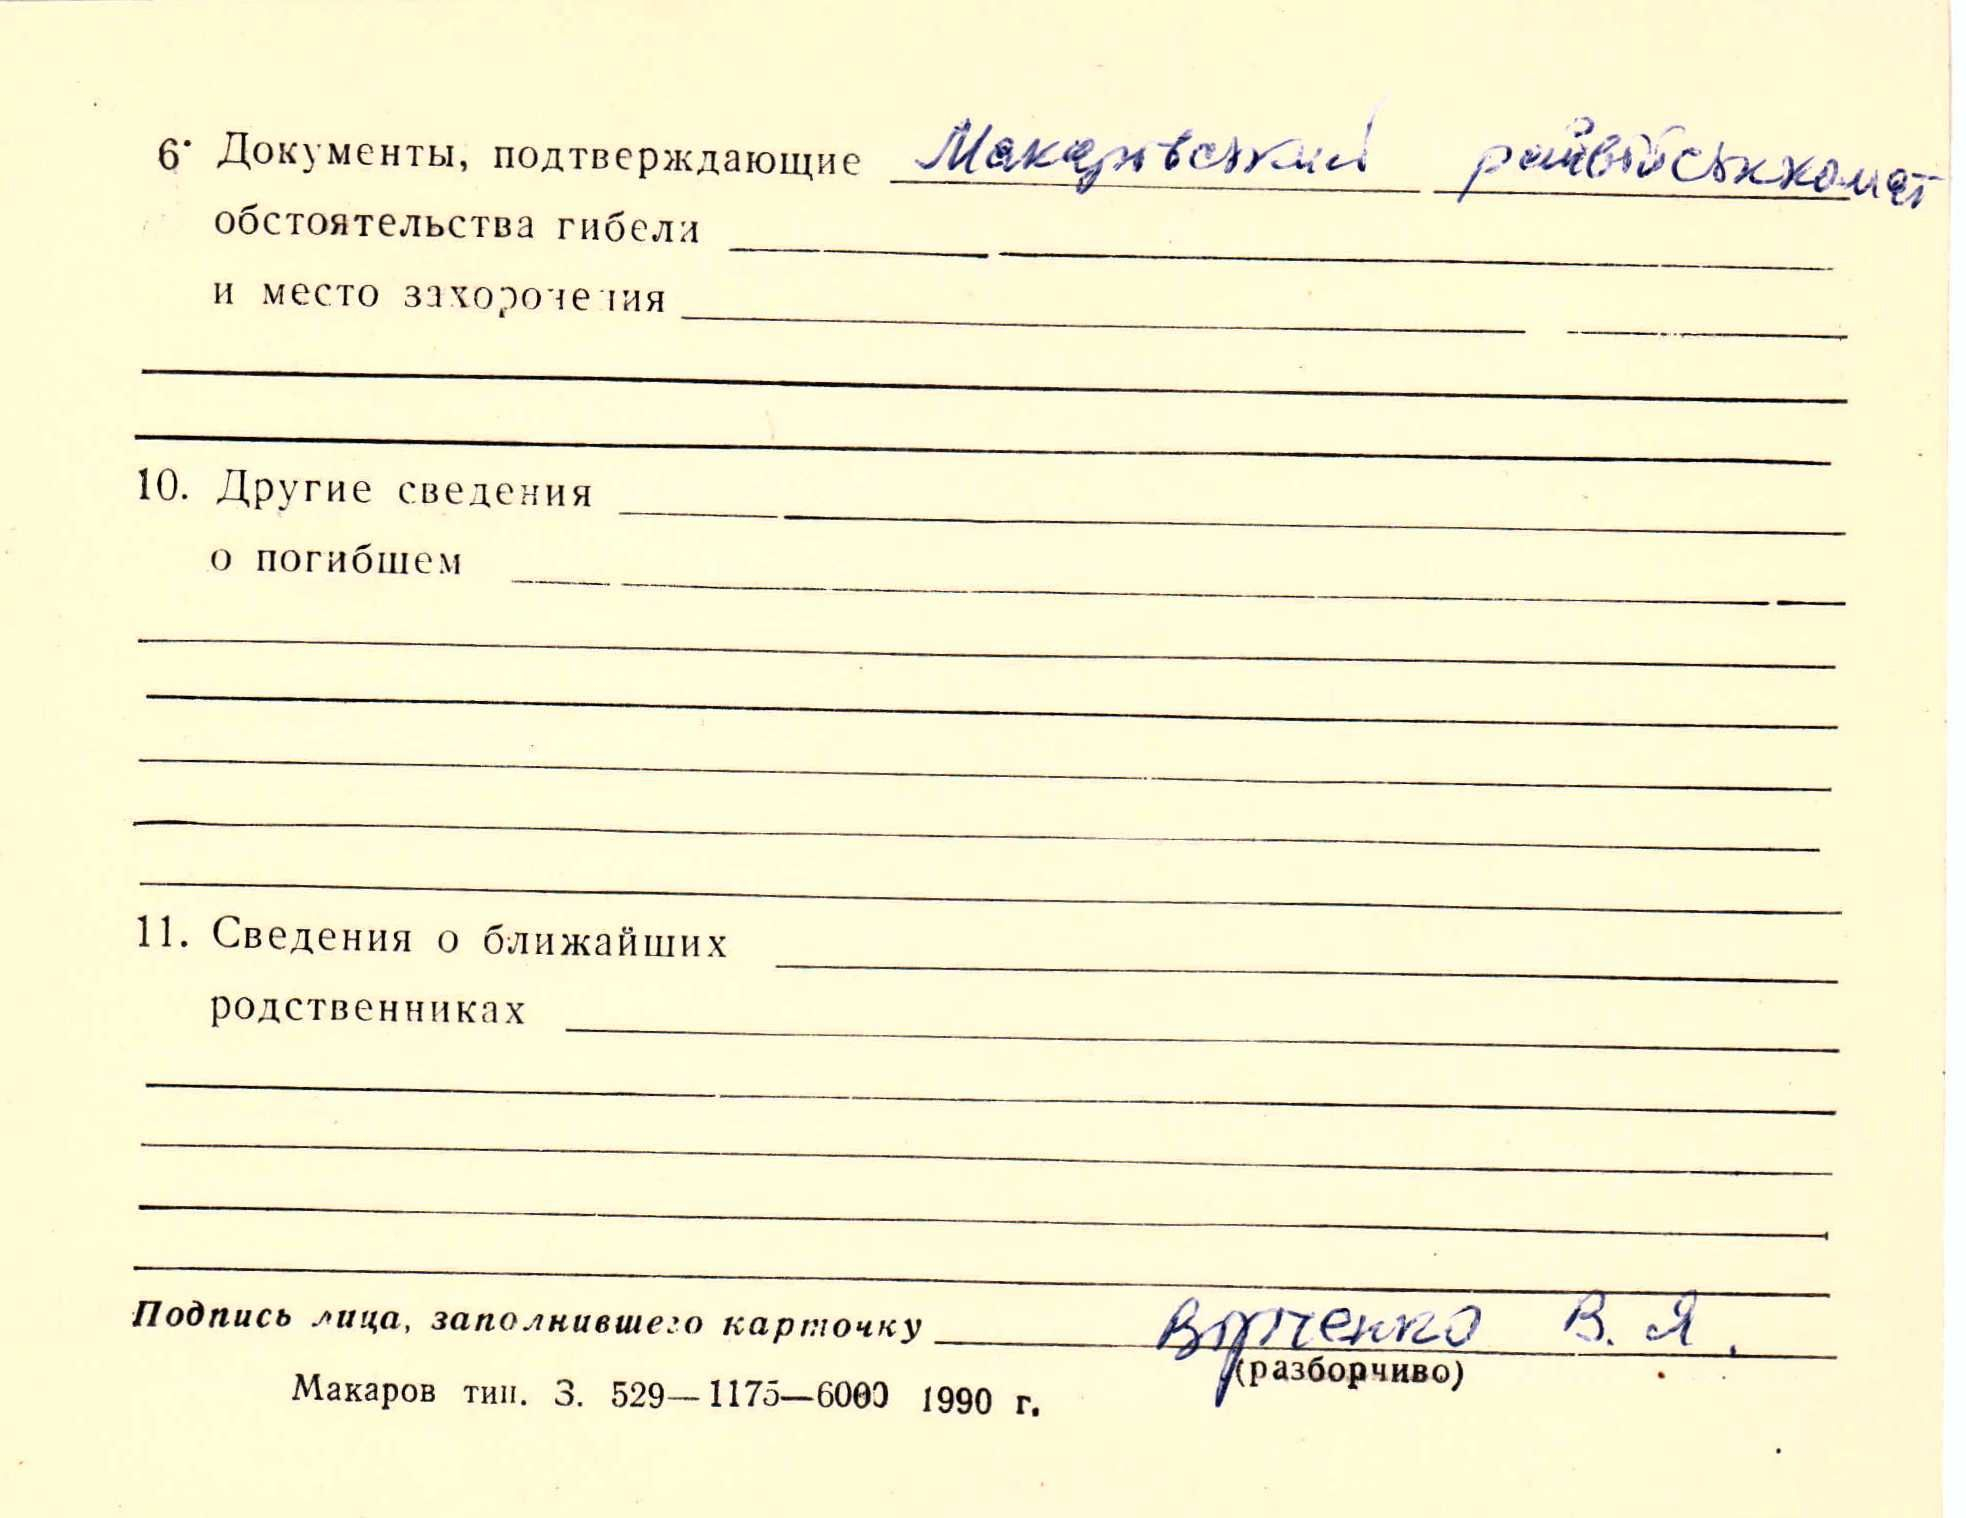 6. Документы, подтверждающие Макарівський райвійськкомат
обстоятельства гибели
и место захоронения
10. Другие сведения
о погибшем
11. Сведения о ближайших
родственниках
Подпись лица, заполнившего карточку В. Я.
(разборчиво)
Макаров тип. З. 529—1175—6000 1990 г.